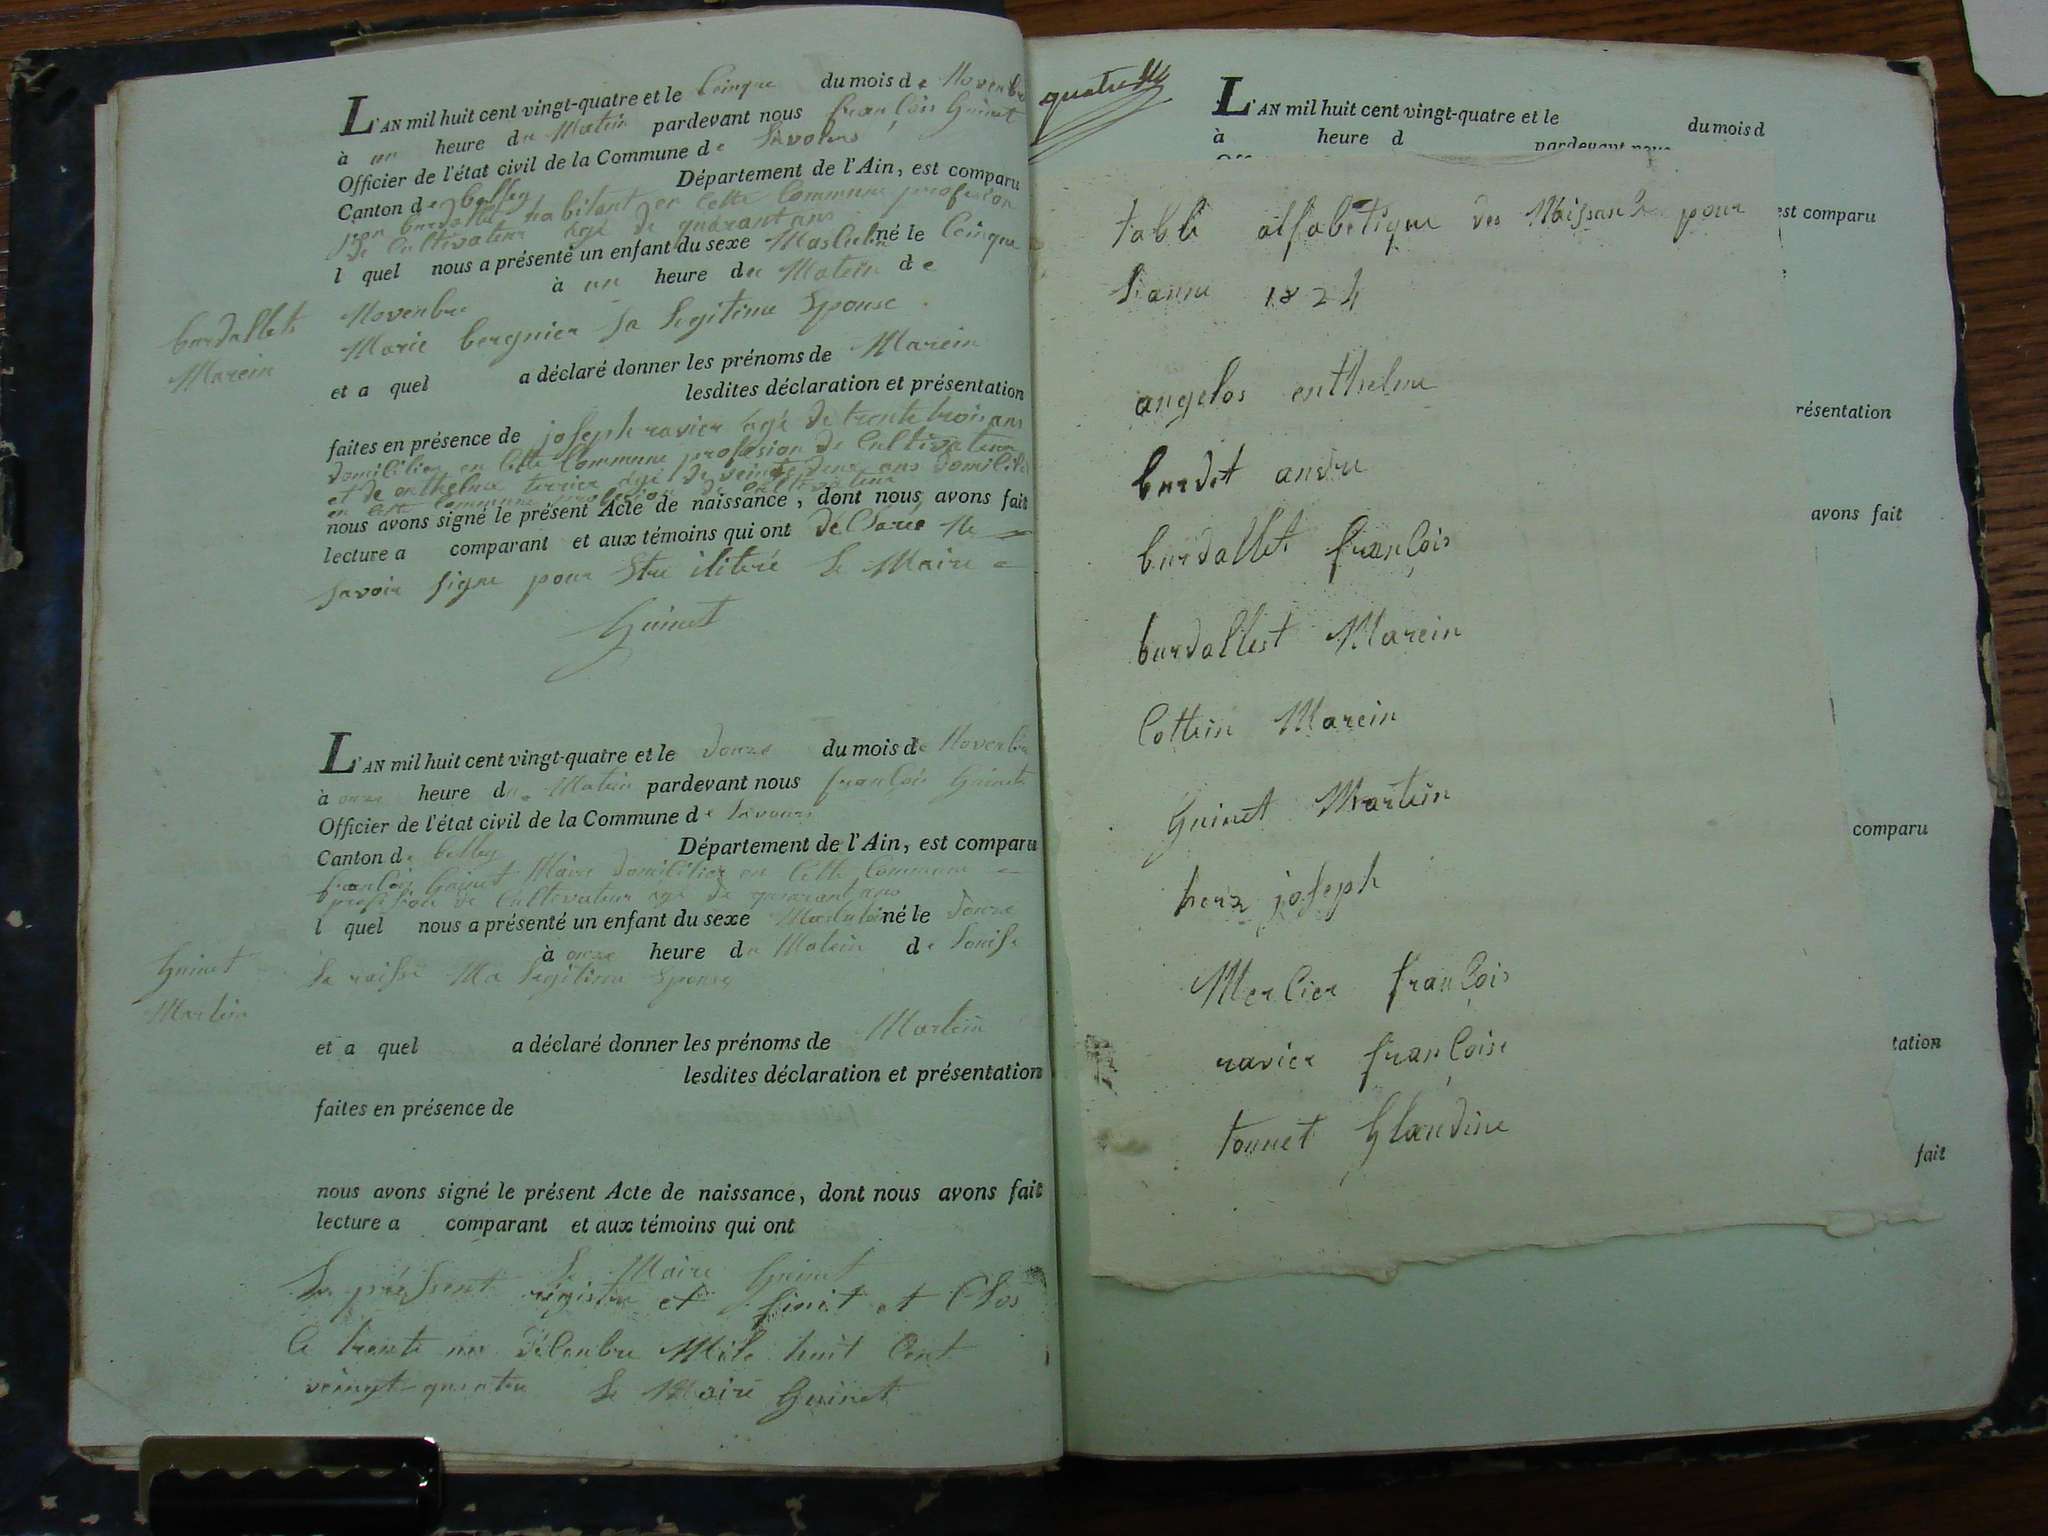 L'AN mil huit cent vingt-quatre et le Cinque du mois de Novembre
à un heure du Matin pardevant nous françois Guinet
Officier de l'état civil de la Commune de Lavours
Canton de belley Département de l'Ain, est comparu
burdallet habitant en cette Commune profesion
de Cultivateur agé de quarant ans
l quel nous a présenté un enfant du sexe Masculin né le Cinque
Novenbre à un heure du Matin de
Marie bergnier sa Legitime Epouse
burdallets
Marein
et a quel a déclaré donner les prénoms de Marein
lesdites déclaration et présentation
faites en présence de joseph ravier agé de trente trois ans
domicilier en cette Commune profesion de Cultivateur
et de enthelme terrier agé de veingt deux ans domicilié
en cette Commune profesion de Cultivateur
nous avons signé le présent Acte de naissance, dont nous avons fait
lecture a comparant et aux témoins qui ont declaré ne
savoir signe pour Etre iliteré Le Maire
Guinet
L'AN mil huit cent vingt-quatre et le douze du mois de Novenbre
à onze heure du Matin pardevant nous françois Guinet
Officier de l'état civil de la Commune de Lavours
Canton de belley Département de l'Ain, est comparu
françois Guinet Maire domicilier en cette Commune
profesion de Cultivateur agé de quarant ans
l quel nous a présenté un enfant du sexe Masculin né le douze
à onze heure du Matein de Louise
Ma Legitime Epouse
Guinet
Martein
et a quel a déclaré donner les prénoms de Martein
lesdites déclaration et présentation
faites en présence de
nous avons signé le présent Acte de naissance, dont nous avons fait
lecture a comparant et aux témoins qui ont
Le Maire Guinet
Le préssent régistre et finit et Clos
Ce trente un décenbre Mile huit Cent
veingt quatre Le Maire Guinet
quatre
L'AN mil huit cent vingt-quatre et le du mois d
à heure d pardevant nous
est comparu
résentation
avons fait
comparu
tation
fait
table alfabetique des Naissance pour
Lanne 1824
angelos enthelme
burdet andre
burdallet françois
burdallest Marein
Cottin Marein
Guinet Martein
herz joseph
Mercier françois
ravier françoise
tonnet Glaudine